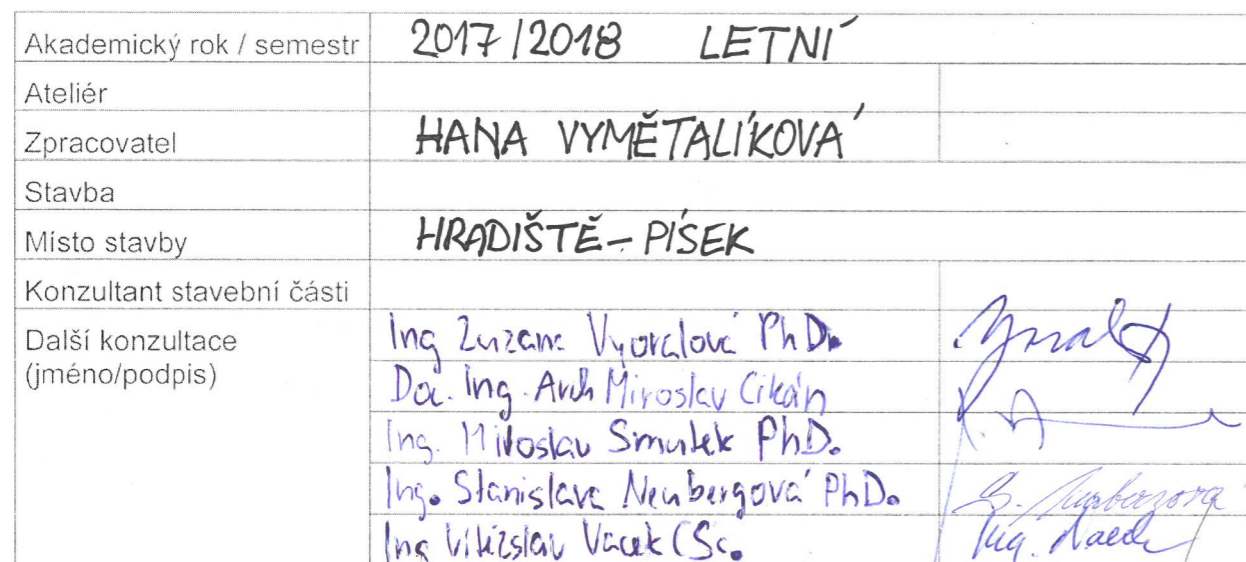 Akademický rok / semestr 2017/2018 LETNÍ
Ateliér
Zpracovatel HANA VYMĚTALÍKOVÁ
Stavba
Místo stavby HRADIŠTĚ - PÍSEK
Konzultant stavební části
Další konzultace Ing Zuzana Vyoralová PhD.
(jméno/podpis) Doc. Ing. Arch Miroslav Cikán
Ing. Miloslav Smutek PhD.
Ing. Stanislava Neubergová PhD. S. Neubergová
Ing Vítězslav Vacek CSc. Ing. Vacek